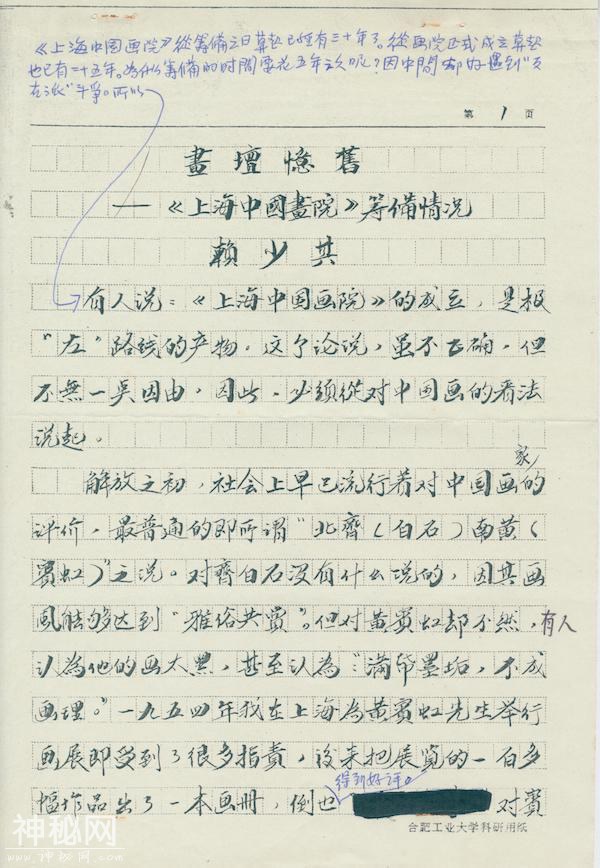 《上海中囯画院》從筹備之日算起已經有三十年了。從画院正式成立算起
也已有二十五年。為什么筹備的时間要花五年之久呢？因中間却好遇到“反
右派”斗爭。所以
第 1 页
畫壇憶舊
——《上海中國畫院》筹備情况
賴少其
有人说：《上海中囯画院》的成立，是极
“左”路线的产物。这个论说，虽不正确，但
不無一点因由，因此，必须從对中囯画的看法
说起。
解放之初，社会上早已流行着对中囯画家的
评价，最普通的即所谓“北齊（白石）南黄（
賓虹）”之说。对齊白石没有什么说的，因其画
風能够达到“雅俗共賞”。但对黄賓虹却不然，有人
认為他的画太黑，甚至认為“满紙墨垢，不成
画理。”一九五四年我在上海為黄賓虹先生举行
画展即受到了很多指責，後来把展览的一百多
幅作品出了一本画册，倒也得到好评。对賓
合肥工业大学科研用纸
神秘网
www.